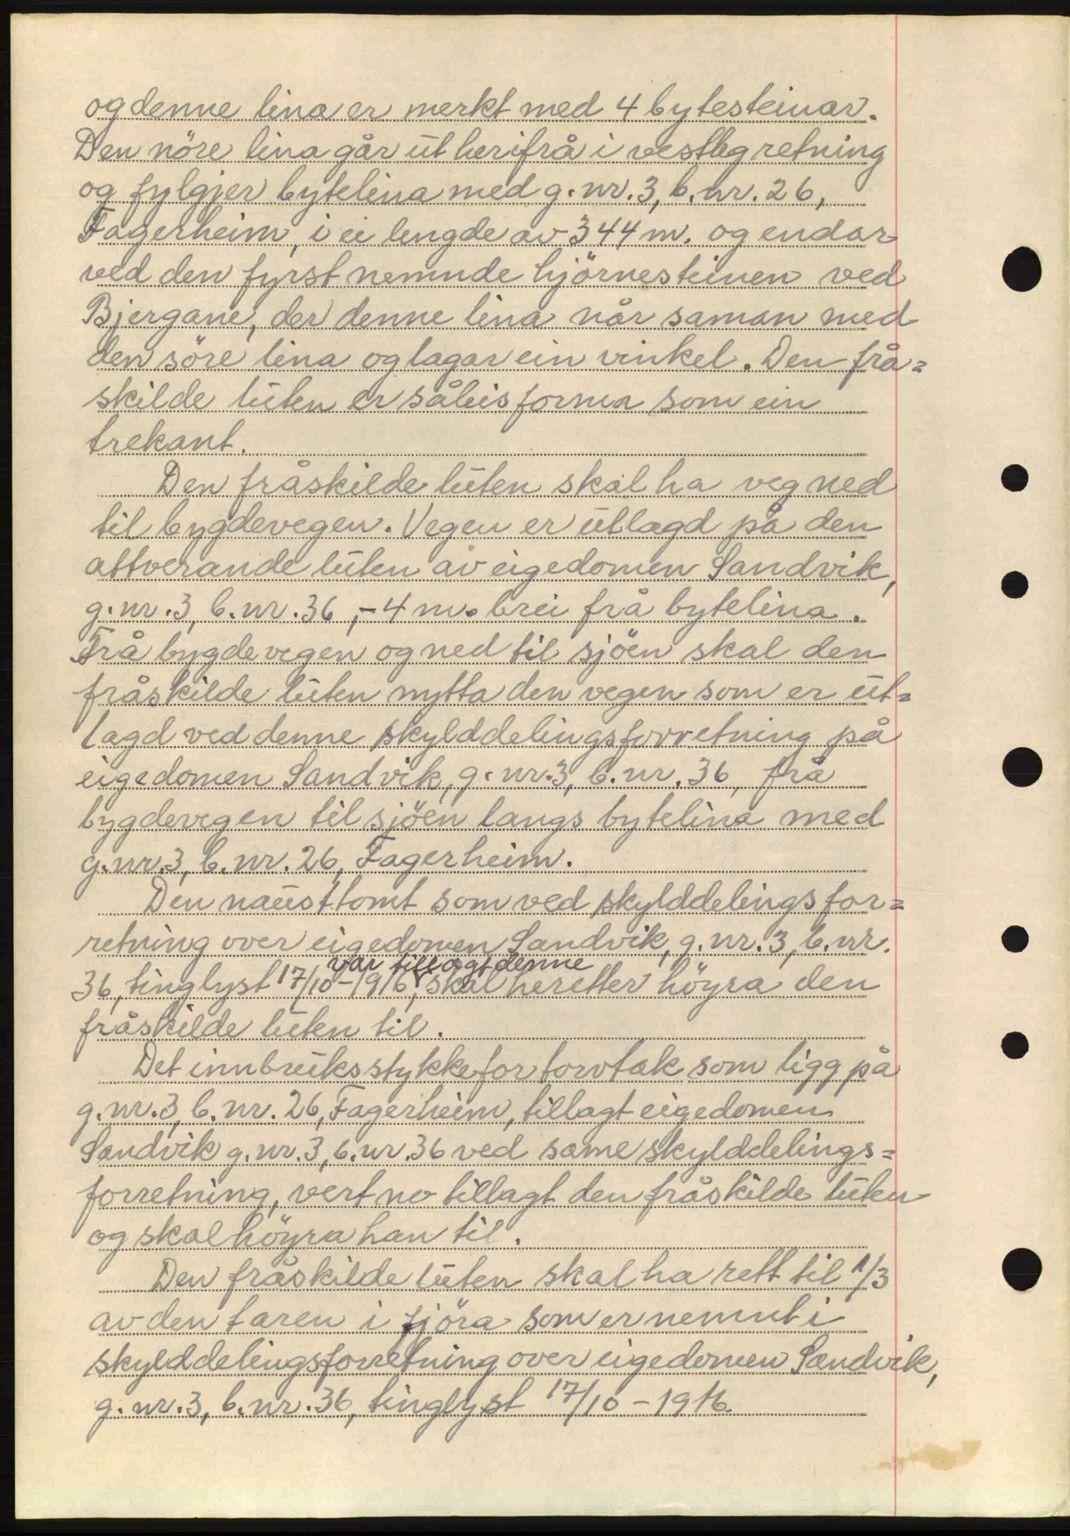 og denne lina er merkt med 4 bytesteinar.
Den nöre lina går ut herifrå i vestleg retning
og fylgjer bytelina med g.nr.3, b.nr.26,
Fagerheim, i ei lengde av 344 m. og endar
ved den fyrst nemnde hjörnesteinen ved
Bjergane, der denne lina når saman med
den söre lina og lagar ein vinkel. Den frå=
skilde luten er såleis forma som ein
trekant.
Den fråskilde luten skal ha veg ned
til bygdevegen. Vegen er utlagd på den
attverande luten av eigedomen Sandvik,
g.nr.3, b.nr.36, - 4 m. brei frå bytelina.
Frå bygdevegen og ned til sjöen skal den
fråskilde luten nytta den vegen som er ut=
lagd ved denne skylddelingsforretning på
eigedomen Sandvik, g.nr.3, b.nr.36, frå
bygdevegen til sjöen langs bytelina med
g.nr.3, b.nr.26, Fagerheim.
Den nausttomt som ved skylddelingsfor=
retning over eigedomen Sandvik, g.nr.3, b.nr.
var tillagt denne
36, tinglyst 17/10-1916, skal heretter höyra den
fråskilde luten til.
Det innbruksstykke for torvtak som ligg på
g.nr.3, b.nr.26, Fagerheim, tillagt eigedomen
Sandvik g.nr.3, b.nr.36 ved same skylddelings=
forretning, vert no tillagt den fråskilde luten
og skal höyra han til.
Den fråskilde luten skal ha rett til 1/3
av den taren i fjöra som er nemnt i
skylddelingsforretning over eigedomen Sandvik,
g.nr.3, b.nr.36, tinglyst 17/10-1916.